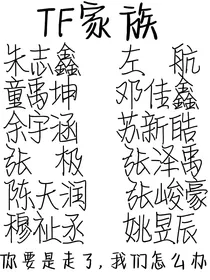 TF家族
朱志鑫 左 航
童禹坤 邓佳鑫
余宇涵 苏新皓
张 极 张泽禹
陈天润 张峻豪
穆祉丞 姚昱辰
你要是走了,我们怎么办